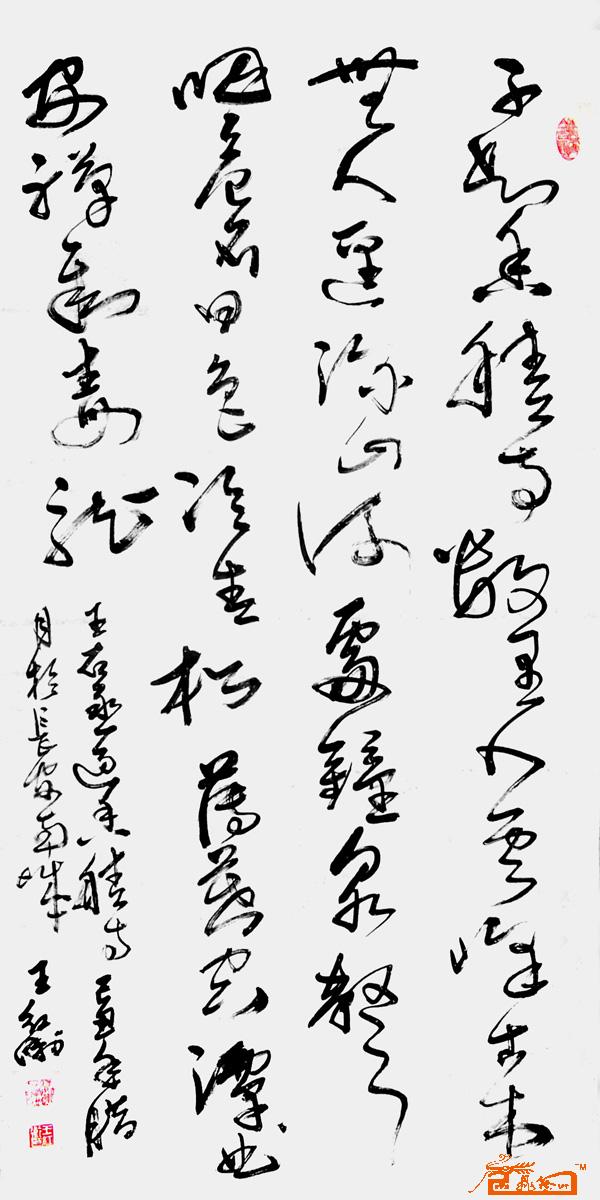 不知香積寺數里入雲峰古木
無人逕深山何處鐘泉聲
咽危石日色冷青松薄暮空潭曲
安禪制毒龍
王右丞過香積寺 己丑年臘
月於長安南城 王